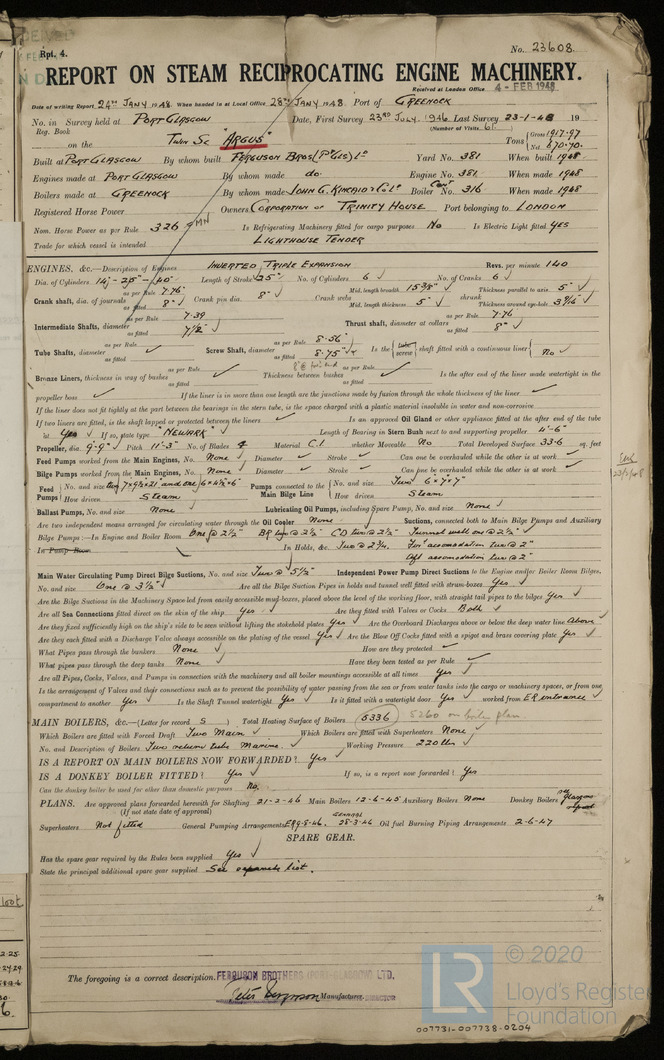 Rpt. 4.
No. 23608.
REPORT ON STEAM RECIPROCATING ENGINE MACHINERY.
Received at London Office 4 - FEB 1948
Date of writing Report 24TH JANY 1948 When handed in at Local Office 28TH JANY 1948 Port of GREENOCK
No. in Survey held at PORT GLASGOW Date, First Survey 23RD JULY. 1946 Last Survey 23-1-48 19
Reg. Book (Number of Visits 61.)
on the Twin Sc "ARGUS" Tons Gross 1917.97 Net 670.70.
Built at PORT GLASGOW By whom built FERGUSON BROS (PT GLS) LD Yard No. 381 When built 1948
Engines made at PORT GLASGOW By whom made do. Engine No. 381. When made 1948
Boilers made at GREENOCK By whom made JOHN G. KINCAID & CO LD Boiler No. 316 When made 1948
Registered Horse Power Owners CORPORATION OF TRINITY HOUSE Port belonging to LONDON
Nom. Horse Power as per Rule 326 MN Is Refrigerating Machinery fitted for cargo purposes No Is Electric Light fitted YES
Trade for which vessel is intended LIGHTHOUSE TENDER
ENGINES, &c.—Description of Engines INVERTED TRIPLE EXPANSION Revs. per minute 140
Dia. of Cylinders 14½ - 25" - 40" Length of Stroke 25" No. of Cylinders 6 No. of Cranks 6
Crank shaft, dia. of journals as per Rule 7.76 as fitted 8" Crank pin dia. 8" Crank webs Mid. length breadth 15 3/8" Mid. length thickness 5" shrunk Thickness parallel to axis 5" Thickness around eye-hole 3 9/16"
Intermediate Shafts, diameter as per Rule 7.39 as fitted 7½" Thrust shaft, diameter at collars as per Rule 7.76 as fitted 8"
Tube Shafts, diameter as per Rule as fitted Screw Shaft, diameter as per Rule 8.56" as fitted 8.75" Is the tube screw shaft fitted with a continuous liner No
Bronze Liners, thickness in way of bushes as per Rule as fitted Thickness between bushes as per Rule as fitted Is the after end of the liner made watertight in the
propeller boss If the liner is in more than one length are the junctions made by fusion through the whole thickness of the liner
If the liner does not fit tightly at the part between the bearings in the stern tube, is the space charged with a plastic material insoluble in water and non-corrosive
If two liners are fitted, is the shaft lapped or protected between the liners Is an approved Oil Gland or other appliance fitted at the after end of the tube
Yes If so, state type "NEWARK" Length of Bearing in Stern Bush next to and supporting propeller 4'-6"
Propeller, dia. 9'-9" Pitch 11'-3" No. of Blades 4 Material C.I. whether Moveable No Total Developed Surface 33.6 sq. feet
Feed Pumps worked from the Main Engines, No. None Diameter Stroke Can one be overhauled while the other is at work
Bilge Pumps worked from the Main Engines, No. None Diameter Stroke Can one be overhauled while the other is at work
Feed Pumps No. and size two 7"x9½"x21" and one 6"x4½"x6" Pumps connected to the Main Bilge Line No. and size Two 6"x7"x7"
How driven Steam How driven Steam
Ballast Pumps, No. and size None Lubricating Oil Pumps, including Spare Pump, No. and size None
Are two independent means arranged for circulating water through the Oil Cooler None Suctions, connected both to Main Bilge Pumps and Auxiliary
Bilge Pumps:—In Engine and Boiler Room One @ 2½" BR two @ 2½" CD two @ 2½" Tunnel well one @ 2½"
In Pump Room In Holds, &c. Two @ 2¾. For' accomodation two @ 2"
Aft accomodation two @ 2"
Main Water Circulating Pump Direct Bilge Suctions, No. and size Two @ 5½" Independent Power Pump Direct Suctions to the Engine and/or Boiler Room Bilges,
No. and size One @ 3½" Are all the Bilge Suction Pipes in holds and tunnel well fitted with strum-boxes Yes
Are the Bilge Suctions in the Machinery Space led from easily accessible mud-boxes, placed above the level of the working floor, with straight tail pipes to the bilges Yes
Are all Sea Connections fitted direct on the skin of the ship Yes Are they fitted with Valves or Cocks Both
Are they fixed sufficiently high on the ship's side to be seen without lifting the stokehold plates Yes Are the Overboard Discharges above or below the deep water line Above
Are they each fitted with a Discharge Valve always accessible on the plating of the vessel Yes Are the Blow Off Cocks fitted with a spigot and brass covering plate Yes
What Pipes pass through the bunkers None How are they protected
What pipes pass through the deep tanks None Have they been tested as per Rule
Are all Pipes, Cocks, Valves, and Pumps in connection with the machinery and all boiler mountings accessible at all times Yes
Is the arrangement of Valves and their connections such as to prevent the possibility of water passing from the sea or from water tanks into the cargo or machinery spaces, or from one
compartment to another Yes Is the Shaft Tunnel watertight Yes Is it fitted with a watertight door Yes worked from E R entrance
MAIN BOILERS, &c.—(Letter for record S) Total Heating Surface of Boilers 5336 5260 on boiler plan.
Which Boilers are fitted with Forced Draft Two Main Which Boilers are fitted with Superheaters None
No. and Description of Boilers Two return tube Marine. Working Pressure 220 lbs
IS A REPORT ON MAIN BOILERS NOW FORWARDED? Yes
IS A DONKEY BOILER FITTED? Yes If so, is a report now forwarded? Yes
Can the donkey boiler be used for other than domestic purposes No.
PLANS. Are approved plans forwarded herewith for Shafting 21-2-46 Main Boilers 12-6-45 Auxiliary Boilers None Donkey Boilers see Glasgow report
(If not state date of approval)
Superheaters Not fitted General Pumping Arrangements ER 9-5-46. General 28-3-46 Oil fuel Burning Piping Arrangements 2-6-47
SPARE GEAR.
Has the spare gear required by the Rules been supplied Yes
State the principal additional spare gear supplied See separate list.
The foregoing is a correct description. FERGUSON BROTHERS (PORT-GLASGOW) LTD.
Peter Ferguson Manufacturer. DIRECTOR
© 2020
LR Lloyd's Register
Foundation
007731-007738-0204